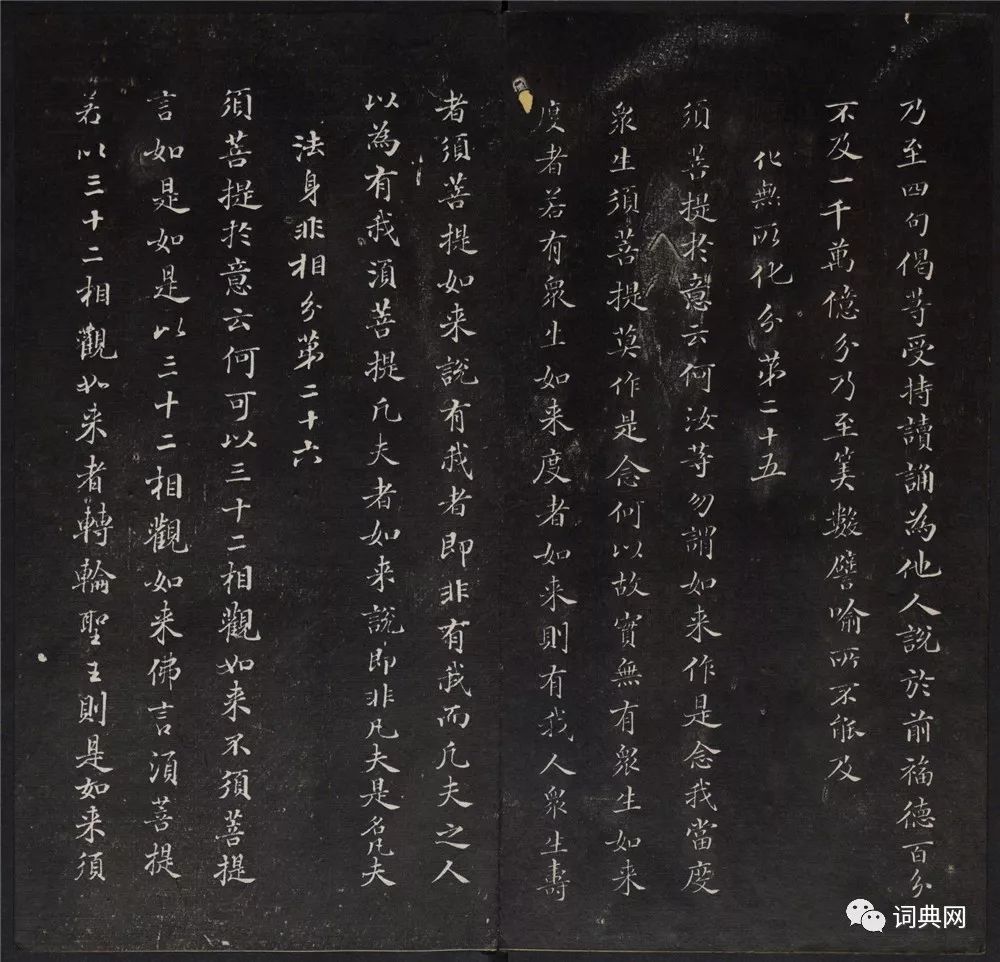 乃至四句偈等受持讀誦為他人說於前福德百分
不及一千萬億分乃至筭數譬喻所不能及
化無所化分第二十五
須菩提於意云何汝等勿謂如来作是念我當度
衆生須菩提莫作是念何以故實無有衆生如来
度者若有衆生如来度者如来則有我人衆生壽
者須菩提如来說有我者即非有我而凡夫之人
以為有我須菩提凡夫者如来說即非凡夫是名凡夫
法身非相分第二十六
須菩提於意云何可以三十二相觀如来不須菩提
言如是如是以三十二相觀如来佛言須菩提
若以三十二相觀如来者轉輪聖王則是如来須
词典网